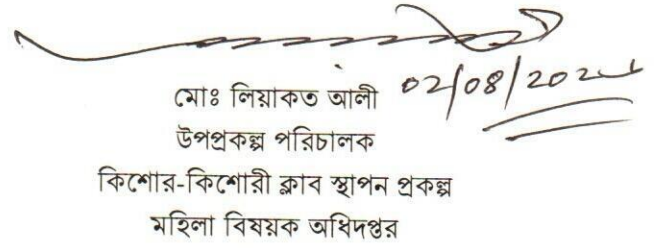 মোঃ লিয়াকত আলী
উপপ্রকল্প পরিচালক
কিশোর-কিশোরী ক্লাব স্থাপন প্রকল্প
মহিলা বিষয়ক অধিদপ্তর